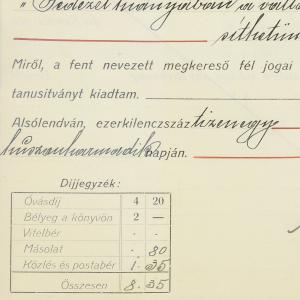 "Fedezet hiányában a váltó
sithetün
Miről, a fent nevezett megkereső fél jogai
tanusitványt kiadtam.
Alsólendván, ezerkilenczszáz tizenegy
huszonharmadik napján.
Díjjegyzék:
Óvásdíj 4 20
Bélyeg a könyvön 2 —
Vitelbér . .
Másolat . 80
Közlés és postabér 1 35
Összesen 8. 35